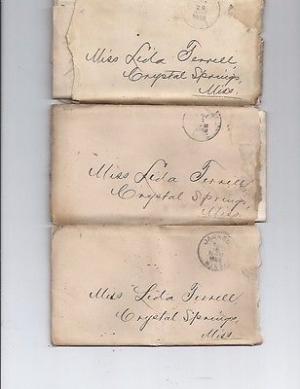 Miss Lida Terrell,
Crystal Springs,
Miss.
Miss Lida Terrell,
Crystal Springs,
Miss.
Miss Lida Terrell
Crystal Springs,
Miss.